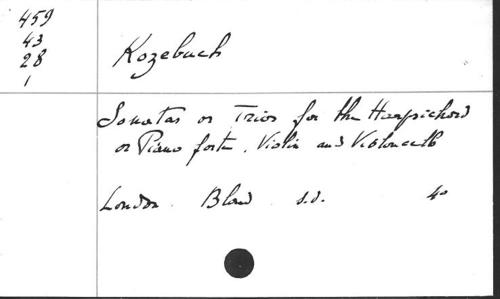 459
43
28
1
Kozebuch
Sonatas or Trios for the Harpsichord
or Piano forte, Violin and Violoncello
London Bland s.d. 4o